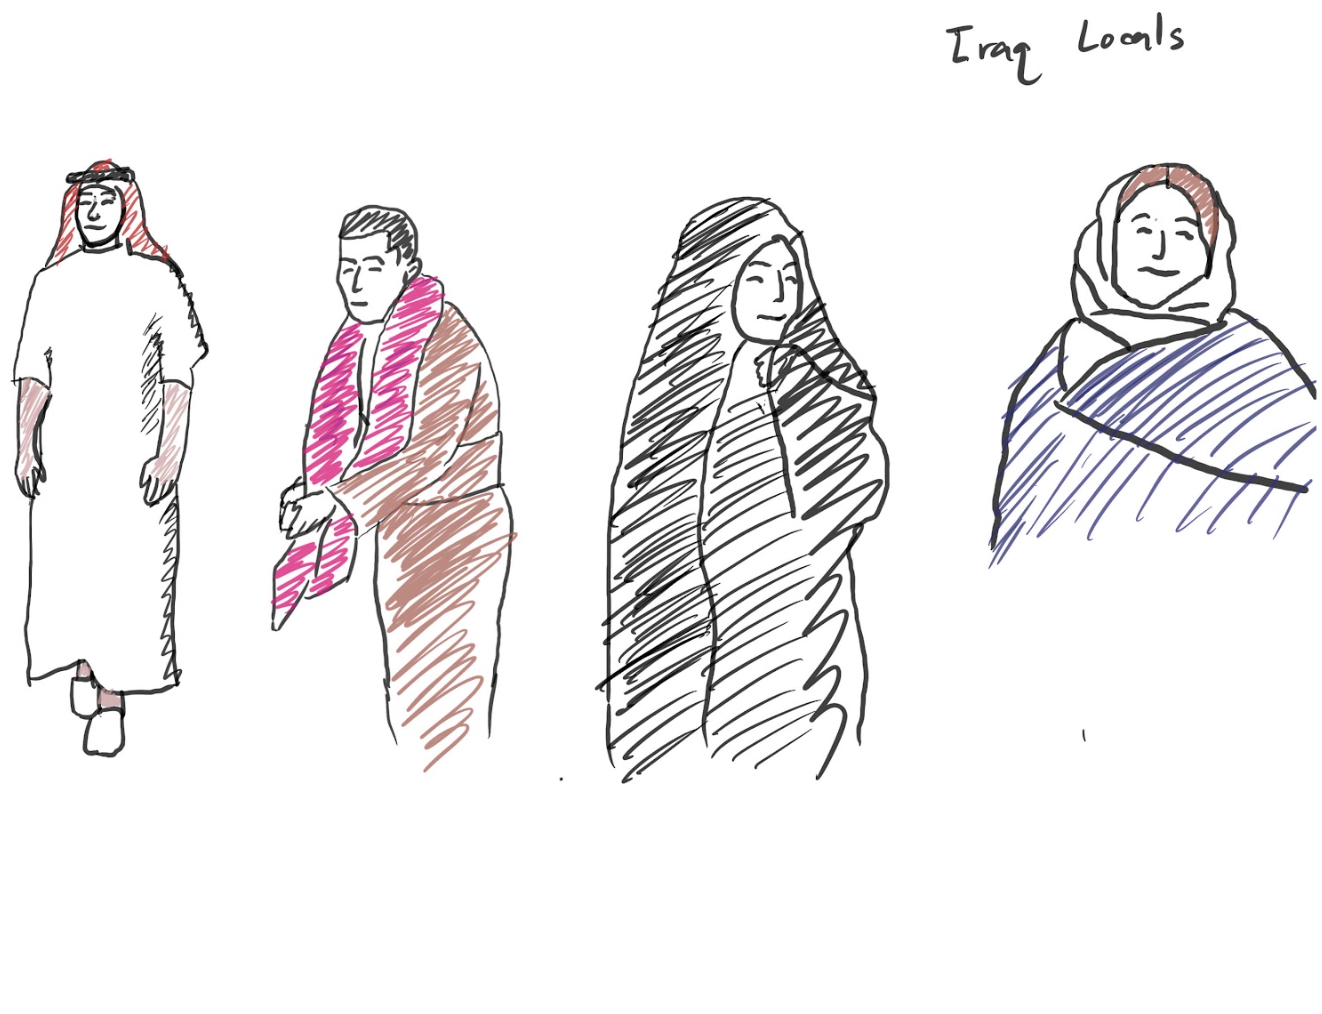 Iraq Locals